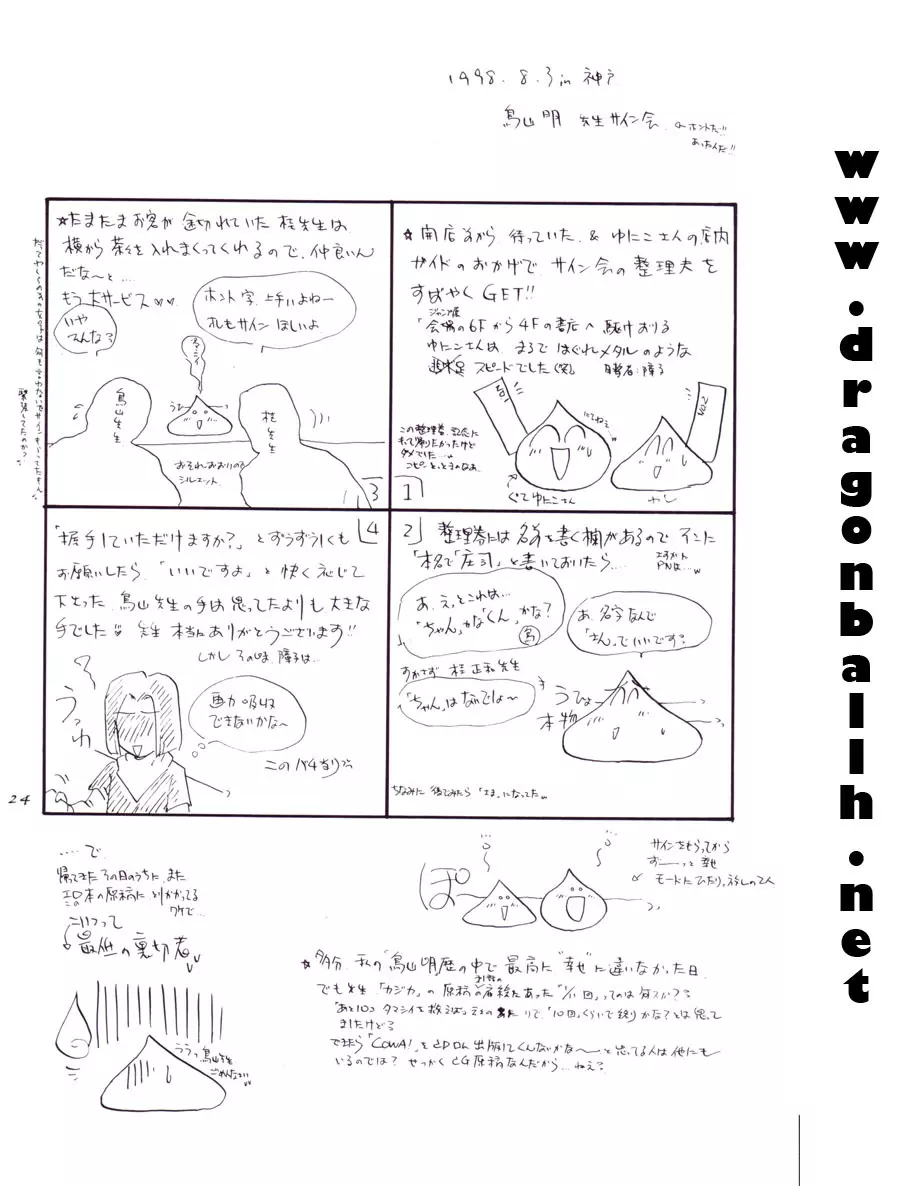 1998. 8. 3 in 神戸
鳥山明 先生サイン会
ホントだ!!
あったんだ!!
☆開店前から待っていた & ゆにこさんの店内
ガイドのおかげで、サイン会の整理券を
すばやくGET!!
ジャンプ展
会場の6Fから4Fの書店へ駆けおりる
ゆにこさんは、まるではぐれメタルのような
スピードでした(笑)
この整理券、記念に
もって帰りたかったけど
ダメでした…
コピーとっときゃなあ
ぐてゆにこさん
1
2
整理券には名前を書く欄があるので そこに
「本名で「庄司」と書いておいたら…
あ、えっとこれは…
「ちゃん」かな「くん」かな?
鳥
あ、名字なんで
「さん」でいいです?
すかさず 桂正和先生
「ちゃん」はないでしょ〜
うひょ
本物
ちなみに 後でみたら「さま」になってた
☆たまたまお客が途切れていた 桂先生は
横から茶々を入れまくってくれるので、仲良いん
だな〜と…
もう大サービス♡♡
いや
そんな?
ホント字、上手いよねー
オレもサインほしいよ
鳥山先生
桂先生
おそれおおいので
シルエット
3
4
「握手していただけますか?」とずうずうしくも
お願いしたら、「いいですよ」と快く応じて
下さった 鳥山先生の手は思ってたよりも大きな
手でした 先生 本当にありがとうございます!!
しかしその時、障子は…
うっ
わ
画力吸収
できないかな〜
このバチあたり
24
……で、
帰ってきたその日のうちに、また
エロ本の原稿に とりかかってる
ワケで…
こいつって
最低の裏切者
ううっ鳥山先生
ごめんなさい
ぽ
サインをもらってから
ずーーっと幸せ
モードにひたりっぱなしの2人
☆多分、私の「鳥山明歴」の中で最高に"幸せ"に違いなかった日
でも先生「カジカ」の原稿の
「あと10コ タマシイを救えば」
「10回」くらいで終りかな?とは思って
ましたけど?
できたら「COWA!」をCD ROM出版してくんないかな〜〜と思ってる人は他にも
いるのでは? せっかくCG原稿なんだから…ねえ?
www.dragonballh.net